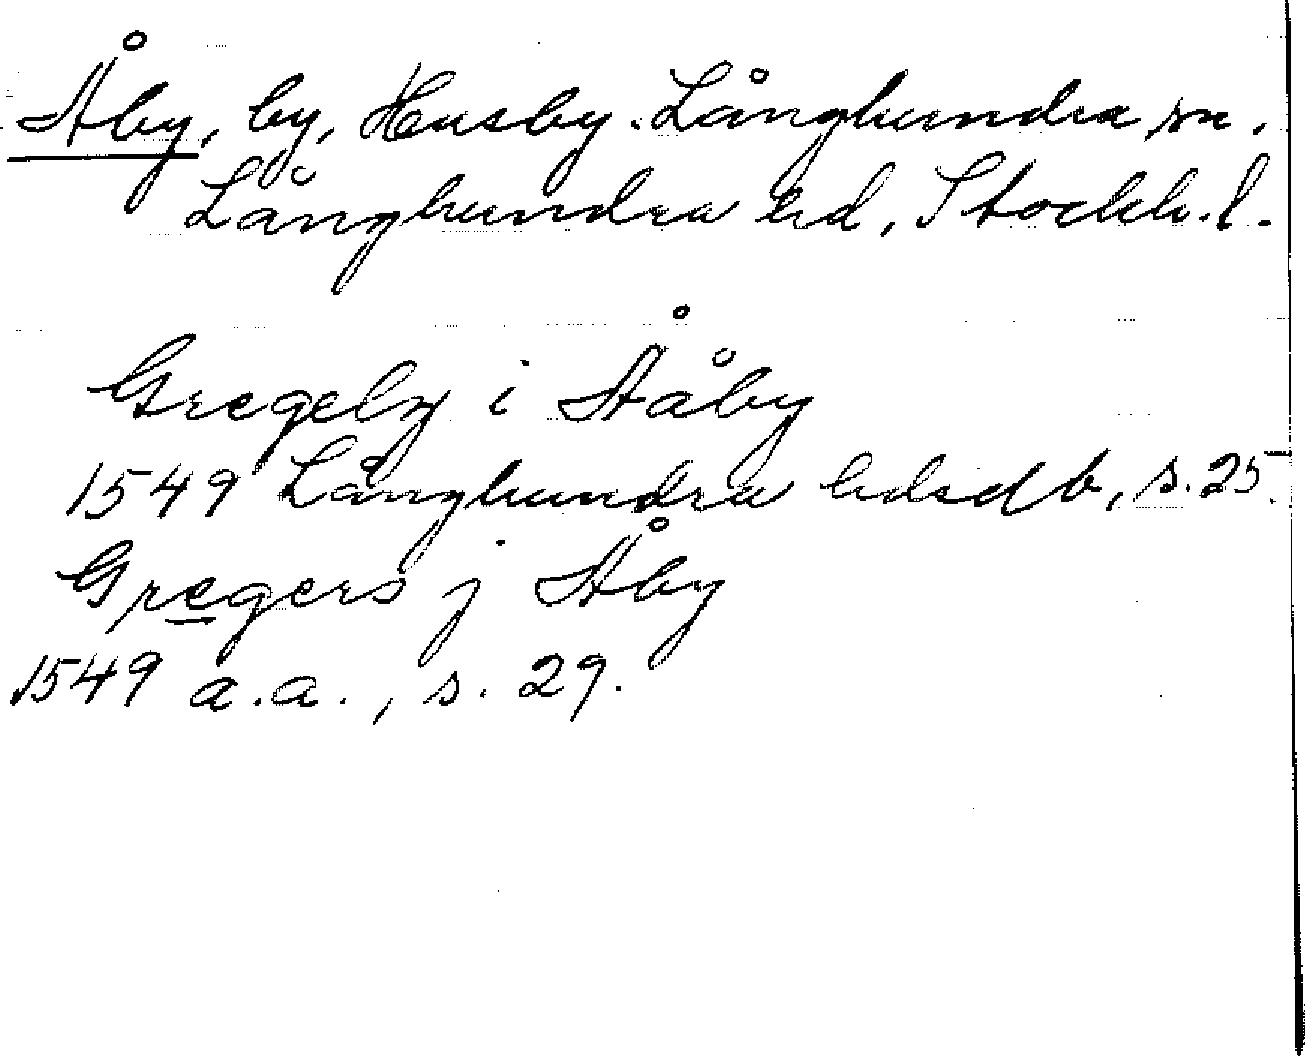 Åby, by, Husby-Långhundra sn.
Långhundra hd, Stockh. l.
Gregelz i Ååby
1549 Långhundra hdsdb, s. 25.
Gregers j Åby
1549 a.a., s. 29.